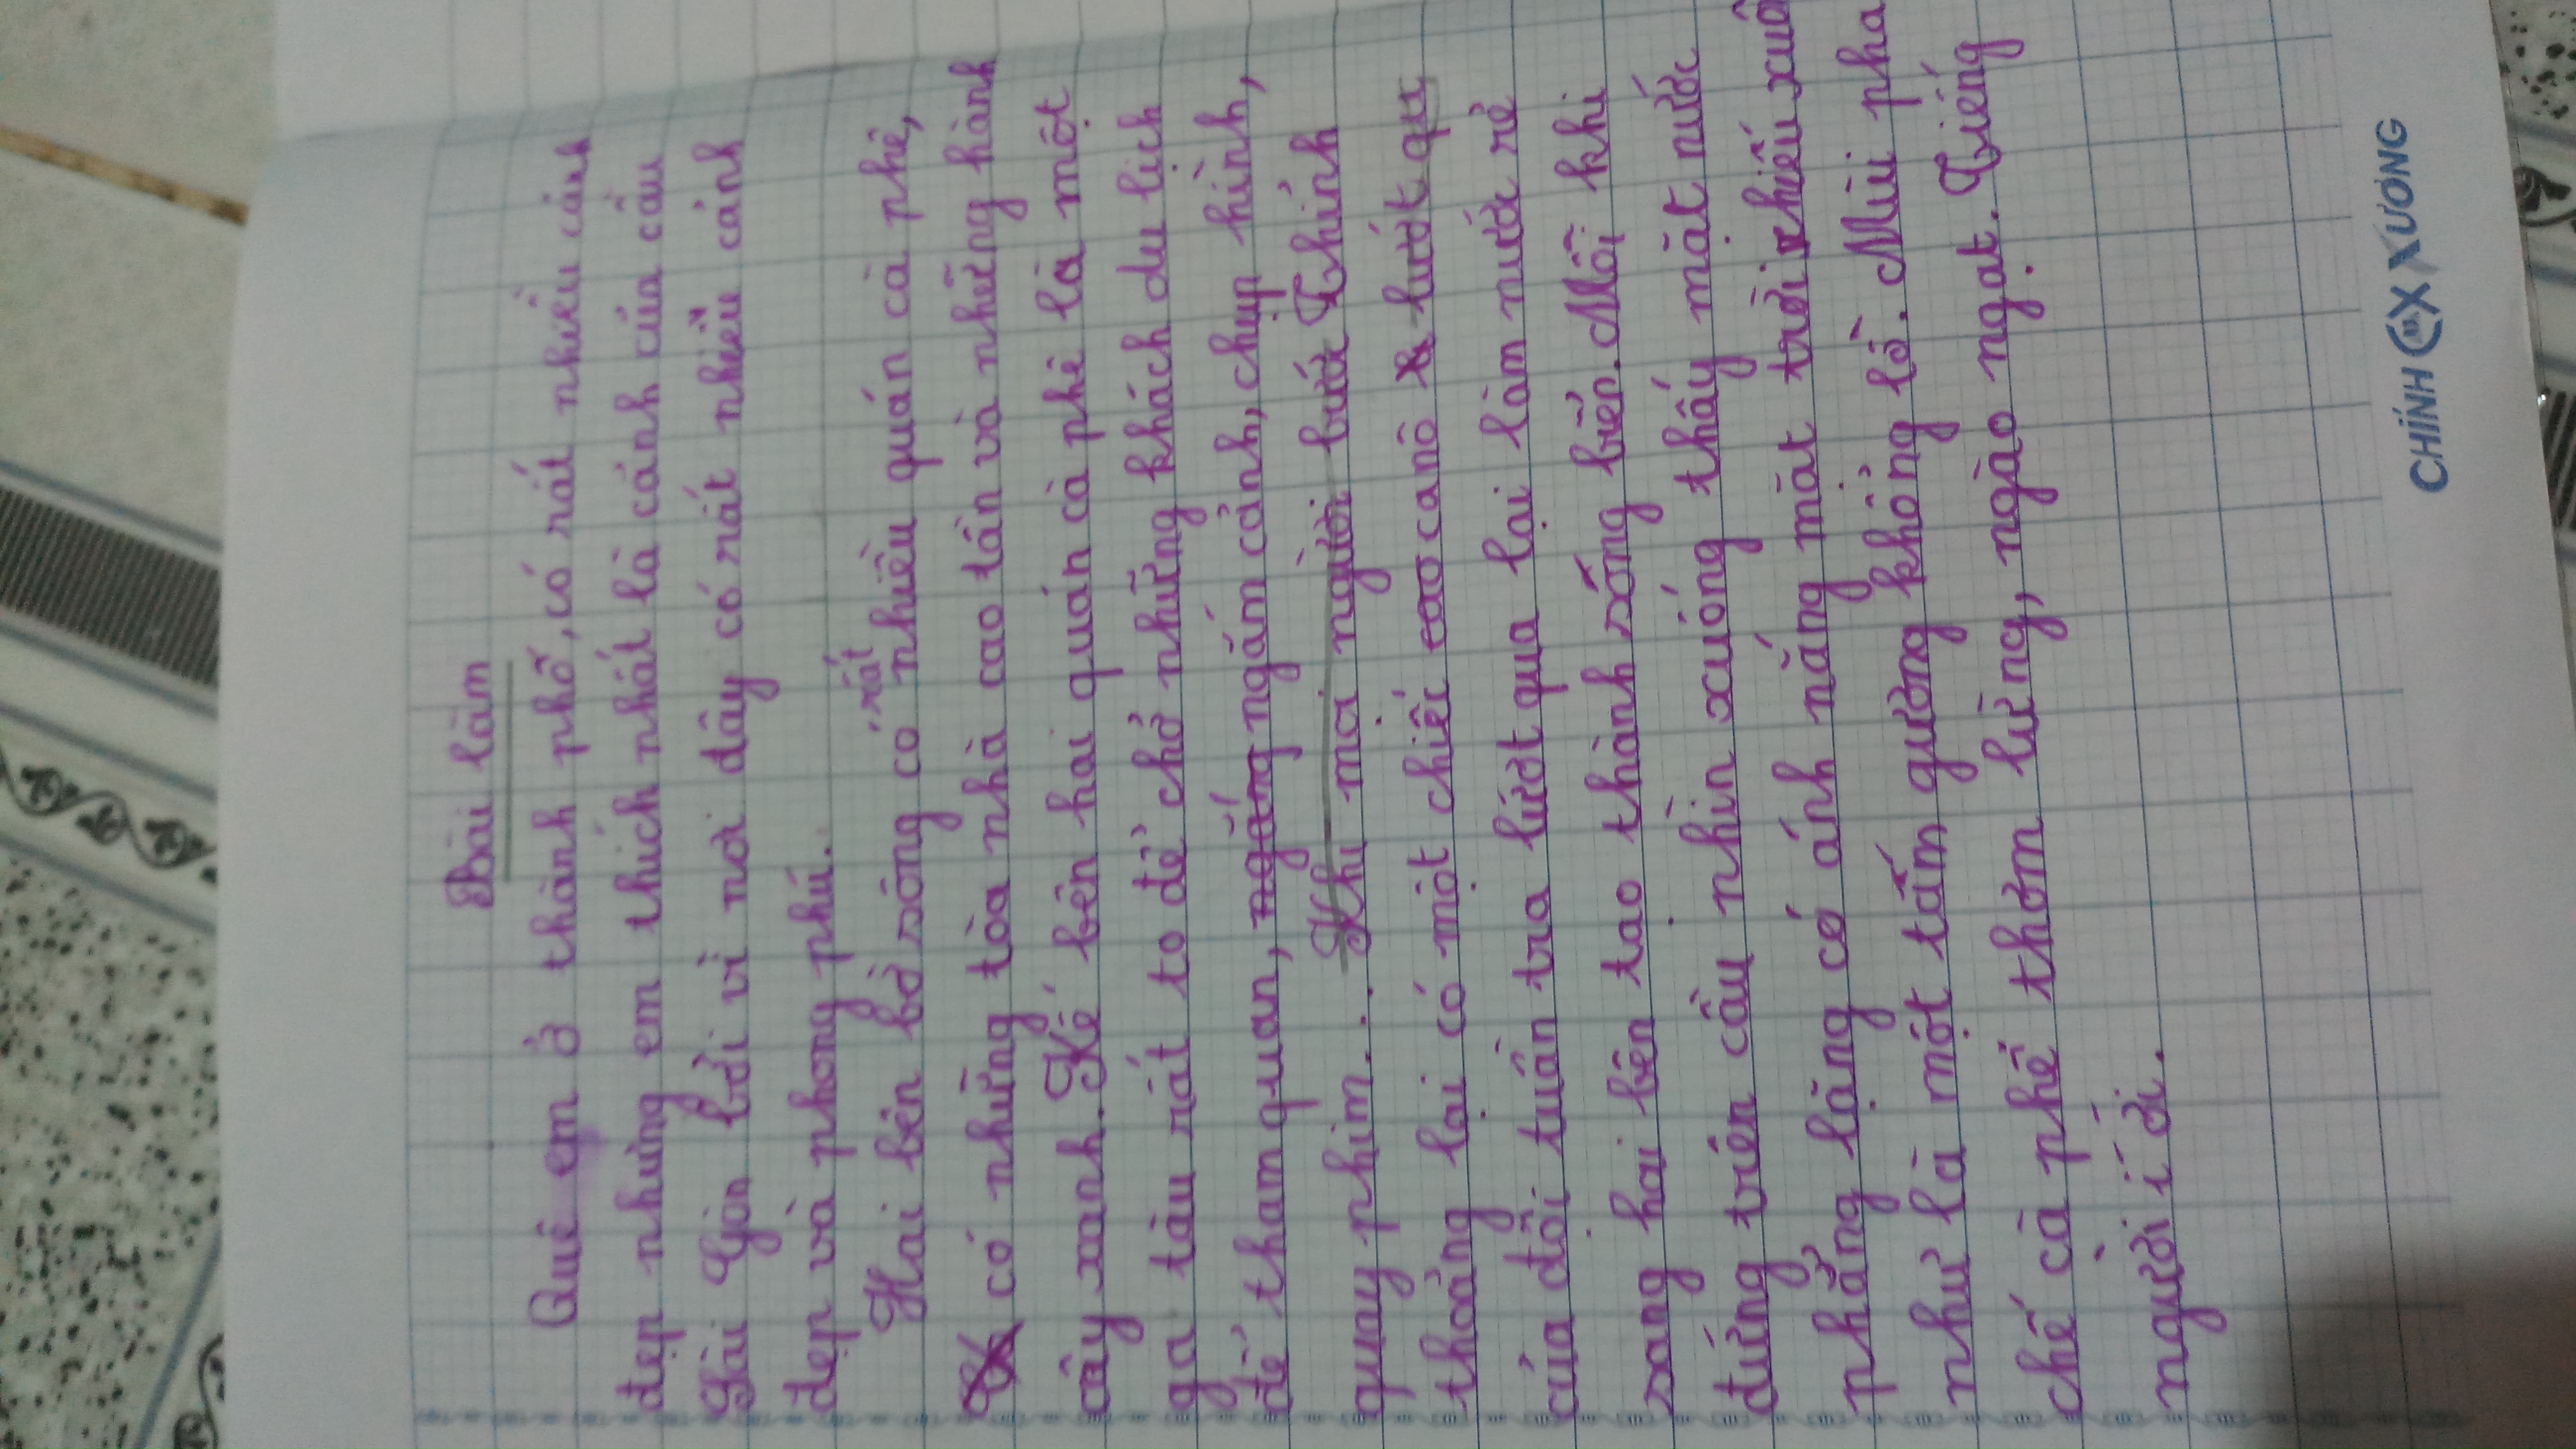 Bài làm
Quê em ở thành phố, có rất nhiều cảnh
đẹp nhưng em thích nhất là cảnh của cầu
Sài Gòn bởi vì nơi đây có rất nhiều cảnh
đẹp và phong phú.
Hai bên bờ sông có rất nhiều quán cà phê,
có những tòa nhà cao tần và những hành
cây xanh. Kế bên hai quán cà phê là một
ga tàu rất to để chở những khách du lịch
để tham quan, ngắm ngắm cảnh, chụp hình,
quay phim... Khi mọi người bước Thỉnh
thoảng lại có một chiếc cao canô lướt qu
của đội tuần tra lướt qua lại làm nước rẽ
sang hai bên tạo thành sống biển. Mỗi khi
đứng trên cầu nhìn xuống thấy mặt nước
phẳng lặng có ánh nắng mặt trời chiếu xuố
như là một tấm gương khổng lồ. Mùi pha
chế cà phê thơm lừng, ngào ngạt. Tiếng
người í ới.
CHÍNH CX XƯƠNG